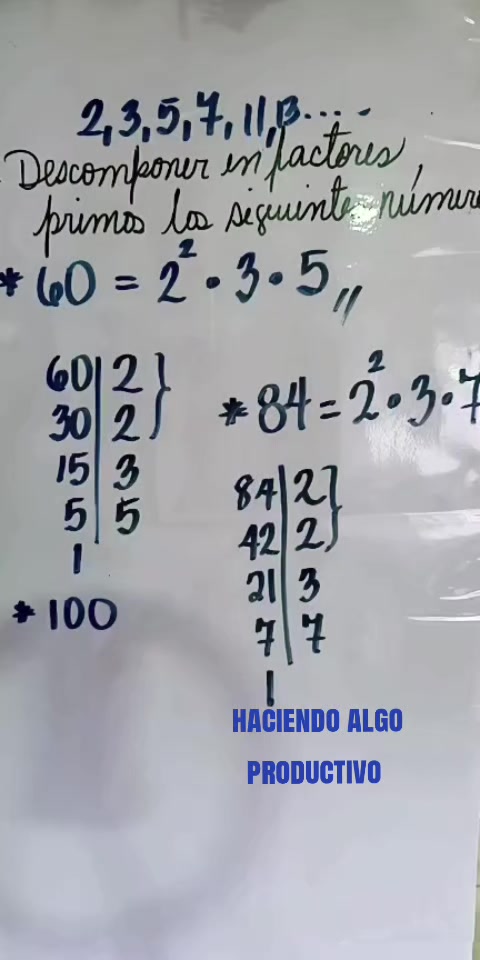 2,3,5,7,11,13....
Descomponer en factores,
primos los siguiente número
* 60 = 2² · 3 · 5,,
60|2}
30|2
15|3
5|5
1
* 84 = 2² · 3 · 7
84|2}
42|2
21|3
7|7
1
* 100
HACIENDO ALGO
PRODUCTIVO